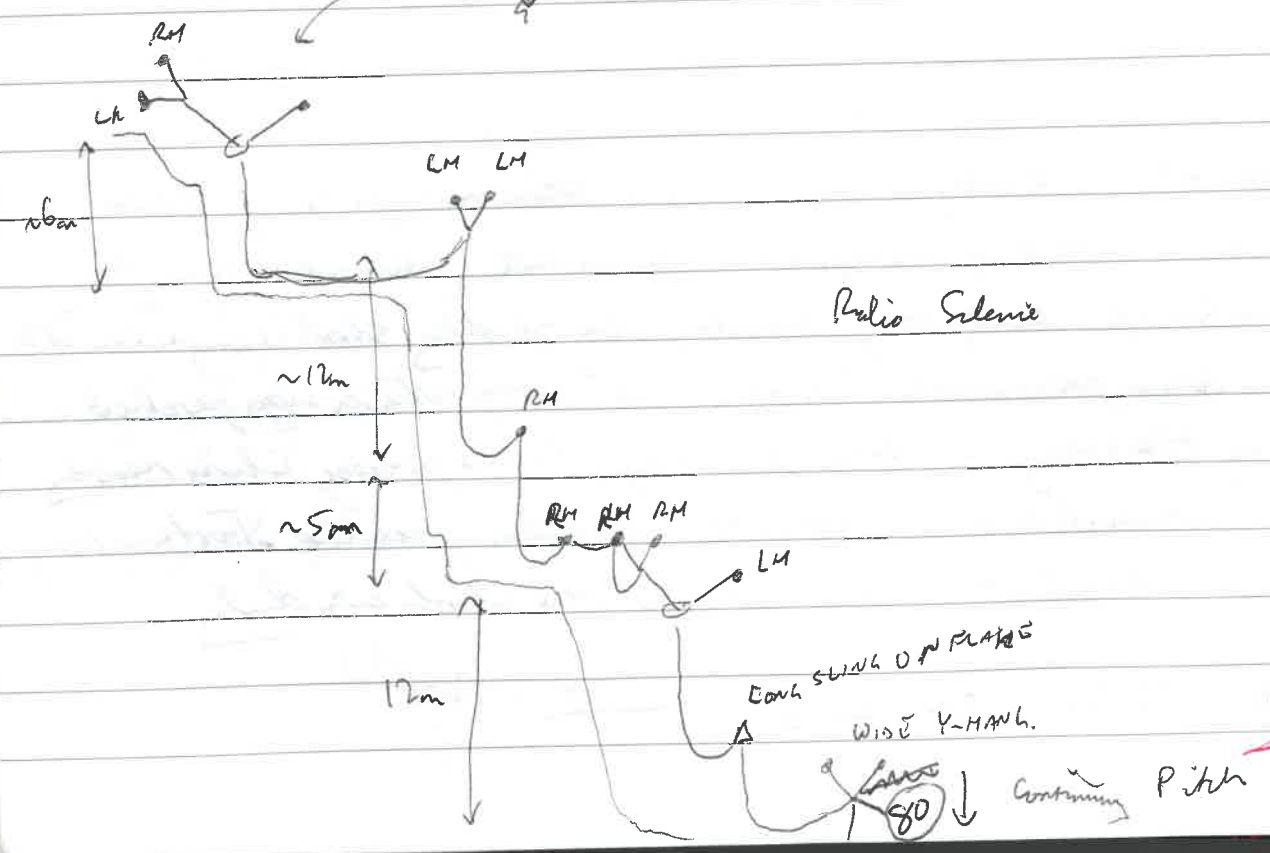 RH
LH
~6m
LH LH
Radio Silence
~12m
RH
~5m
RH RH RH
LH
12m
LONG SLING ON FLAKE
WIDE Y-HANG.
80
Continuing Pitch